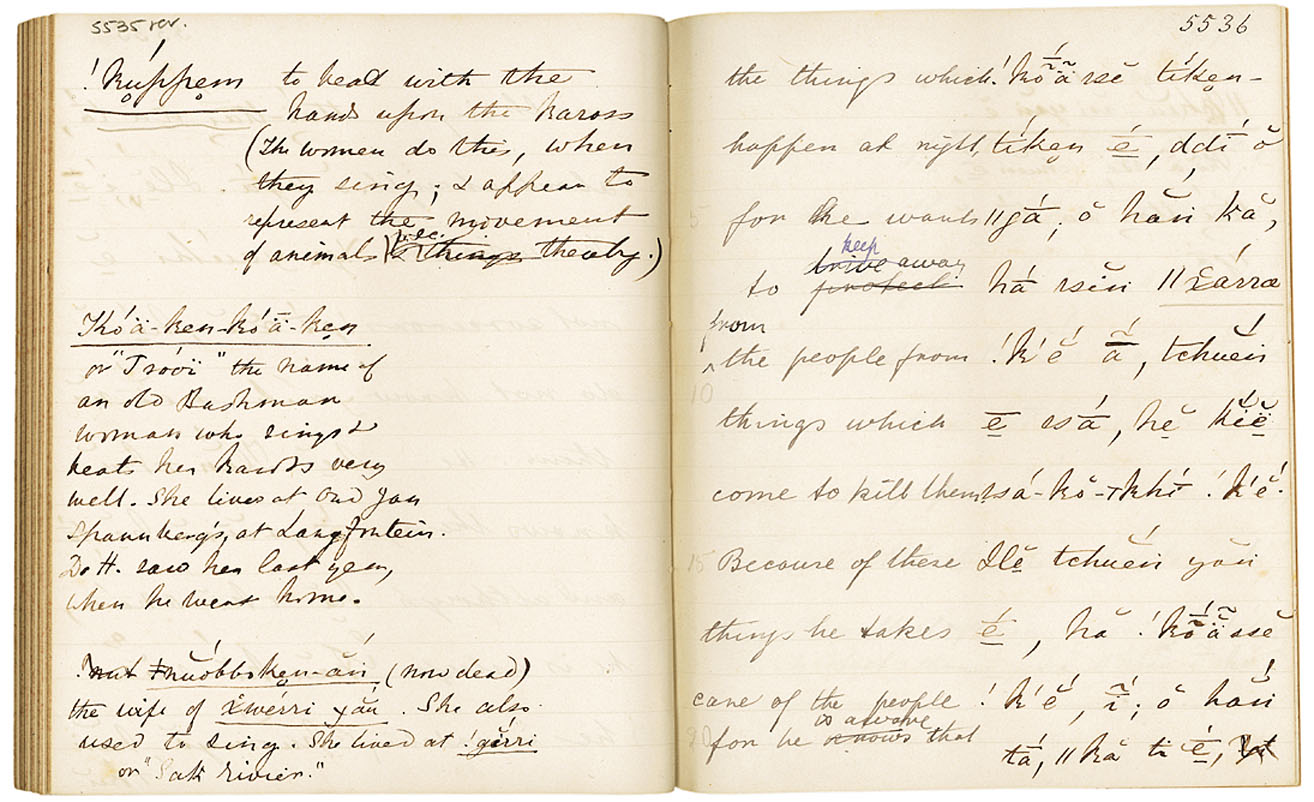 5535 rev.
!kúppem to beat with the
hands upon the kaross
(The women do this, when
they sing; & appear to
represent the movement
of animals & things thereby.)
Kó´ä-ken-kó´ā-ken
or "Trooi" the name of
an old Bushman
woman who sings &
beats her hands very
well. She lives at Oud Jan
Spannberg's, at Langfontein.
D. H. saw her last year,
when he went home.
(now dead)
the wife of xwérri yāń. She also
used to sing. She lived at !gérri
or "Sak River."
5536
the things which !kõ´ä rse tíken-
happen at night, tíken é, ddí ŏ
5 for he wants ǁgá; ŏ hăn kă,
keep
drive away
to protect há rsin ǁxárra
from
the people from !k'ĕ ā, tchuĕń
10
things which ē rsá, hĕ
come to kill them tsá-kŏ-ikhī !k'ĕ.
15 Because of these Ilĕ tchuĕń yăń
things he takes é, hă !kõ´ässĕ
care of the people !k'ĕ, ĩ; ŏ hăń
is aware
20 for he knows that tá, ǁkă ti é,